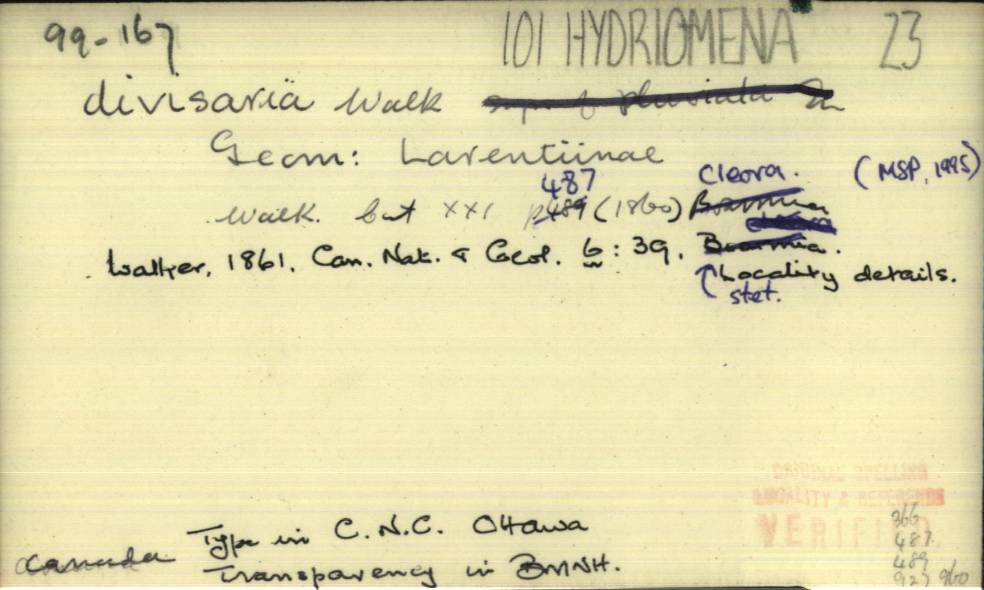 99-167 101 HYDRIOMENA 23
divisaria Walk syn. of pluviata Gn
Geom: Larentiinae
487 Cleora. (MSP, 1995)
Walk. Cat XXI p489 (1860) Boarmia
Cleora
Walker, 1861. Can. Nat. & Geol. 6 : 39. Boarmia.
Locality details.
stet.
ORIGINAL SPELLING
LOCALITY & REFERENCE
VERIFIED.
366
487
489
927 960
Type in C.N.C. Ottawa
Canada
Transparency in BMNH.